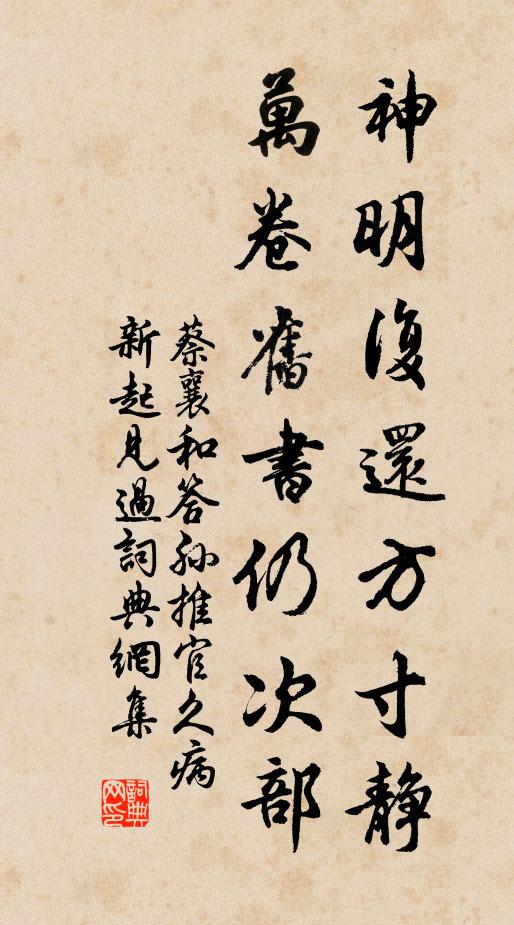 神明復還方寸静
萬卷舊書仍次部
蔡襄和答孙推官久病
新起見過詞典網集
詞典
网